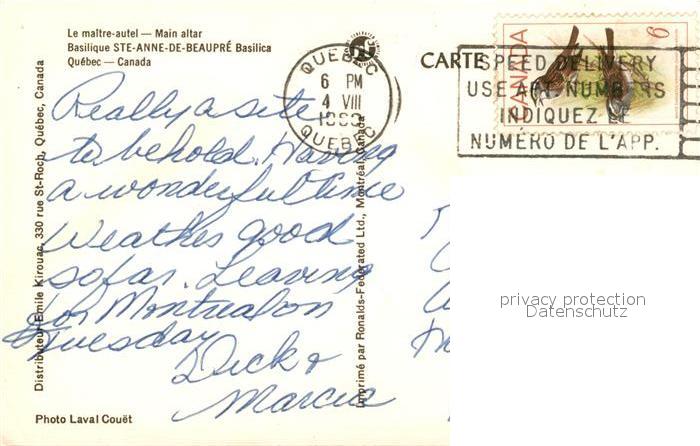 Le maître-autel — Main altar
Basilique STE-ANNE-DE-BEAUPRÉ Basilica
Québec — Canada
QUEBEC
6 PM
4 VIII
QUEBEC
CARTE
CANADA
6
SPEED DELIVERY
USE APT. NUMBERS
INDIQUEZ LE
NUMÉRO DE L'APP.
Really a site
to behold. Having
a wonderful time
Weather good
so far. Leaving
for Montreal on
Tuesday
Dick &
Marcia
Distributeur Emile Kirouac, 330 rue St-Roch, Québec, Canada
Imprimé par Ronalds-Federated Ltd., Montréal, Canada
Photo Laval Couët
privacy protection
Datenschutz